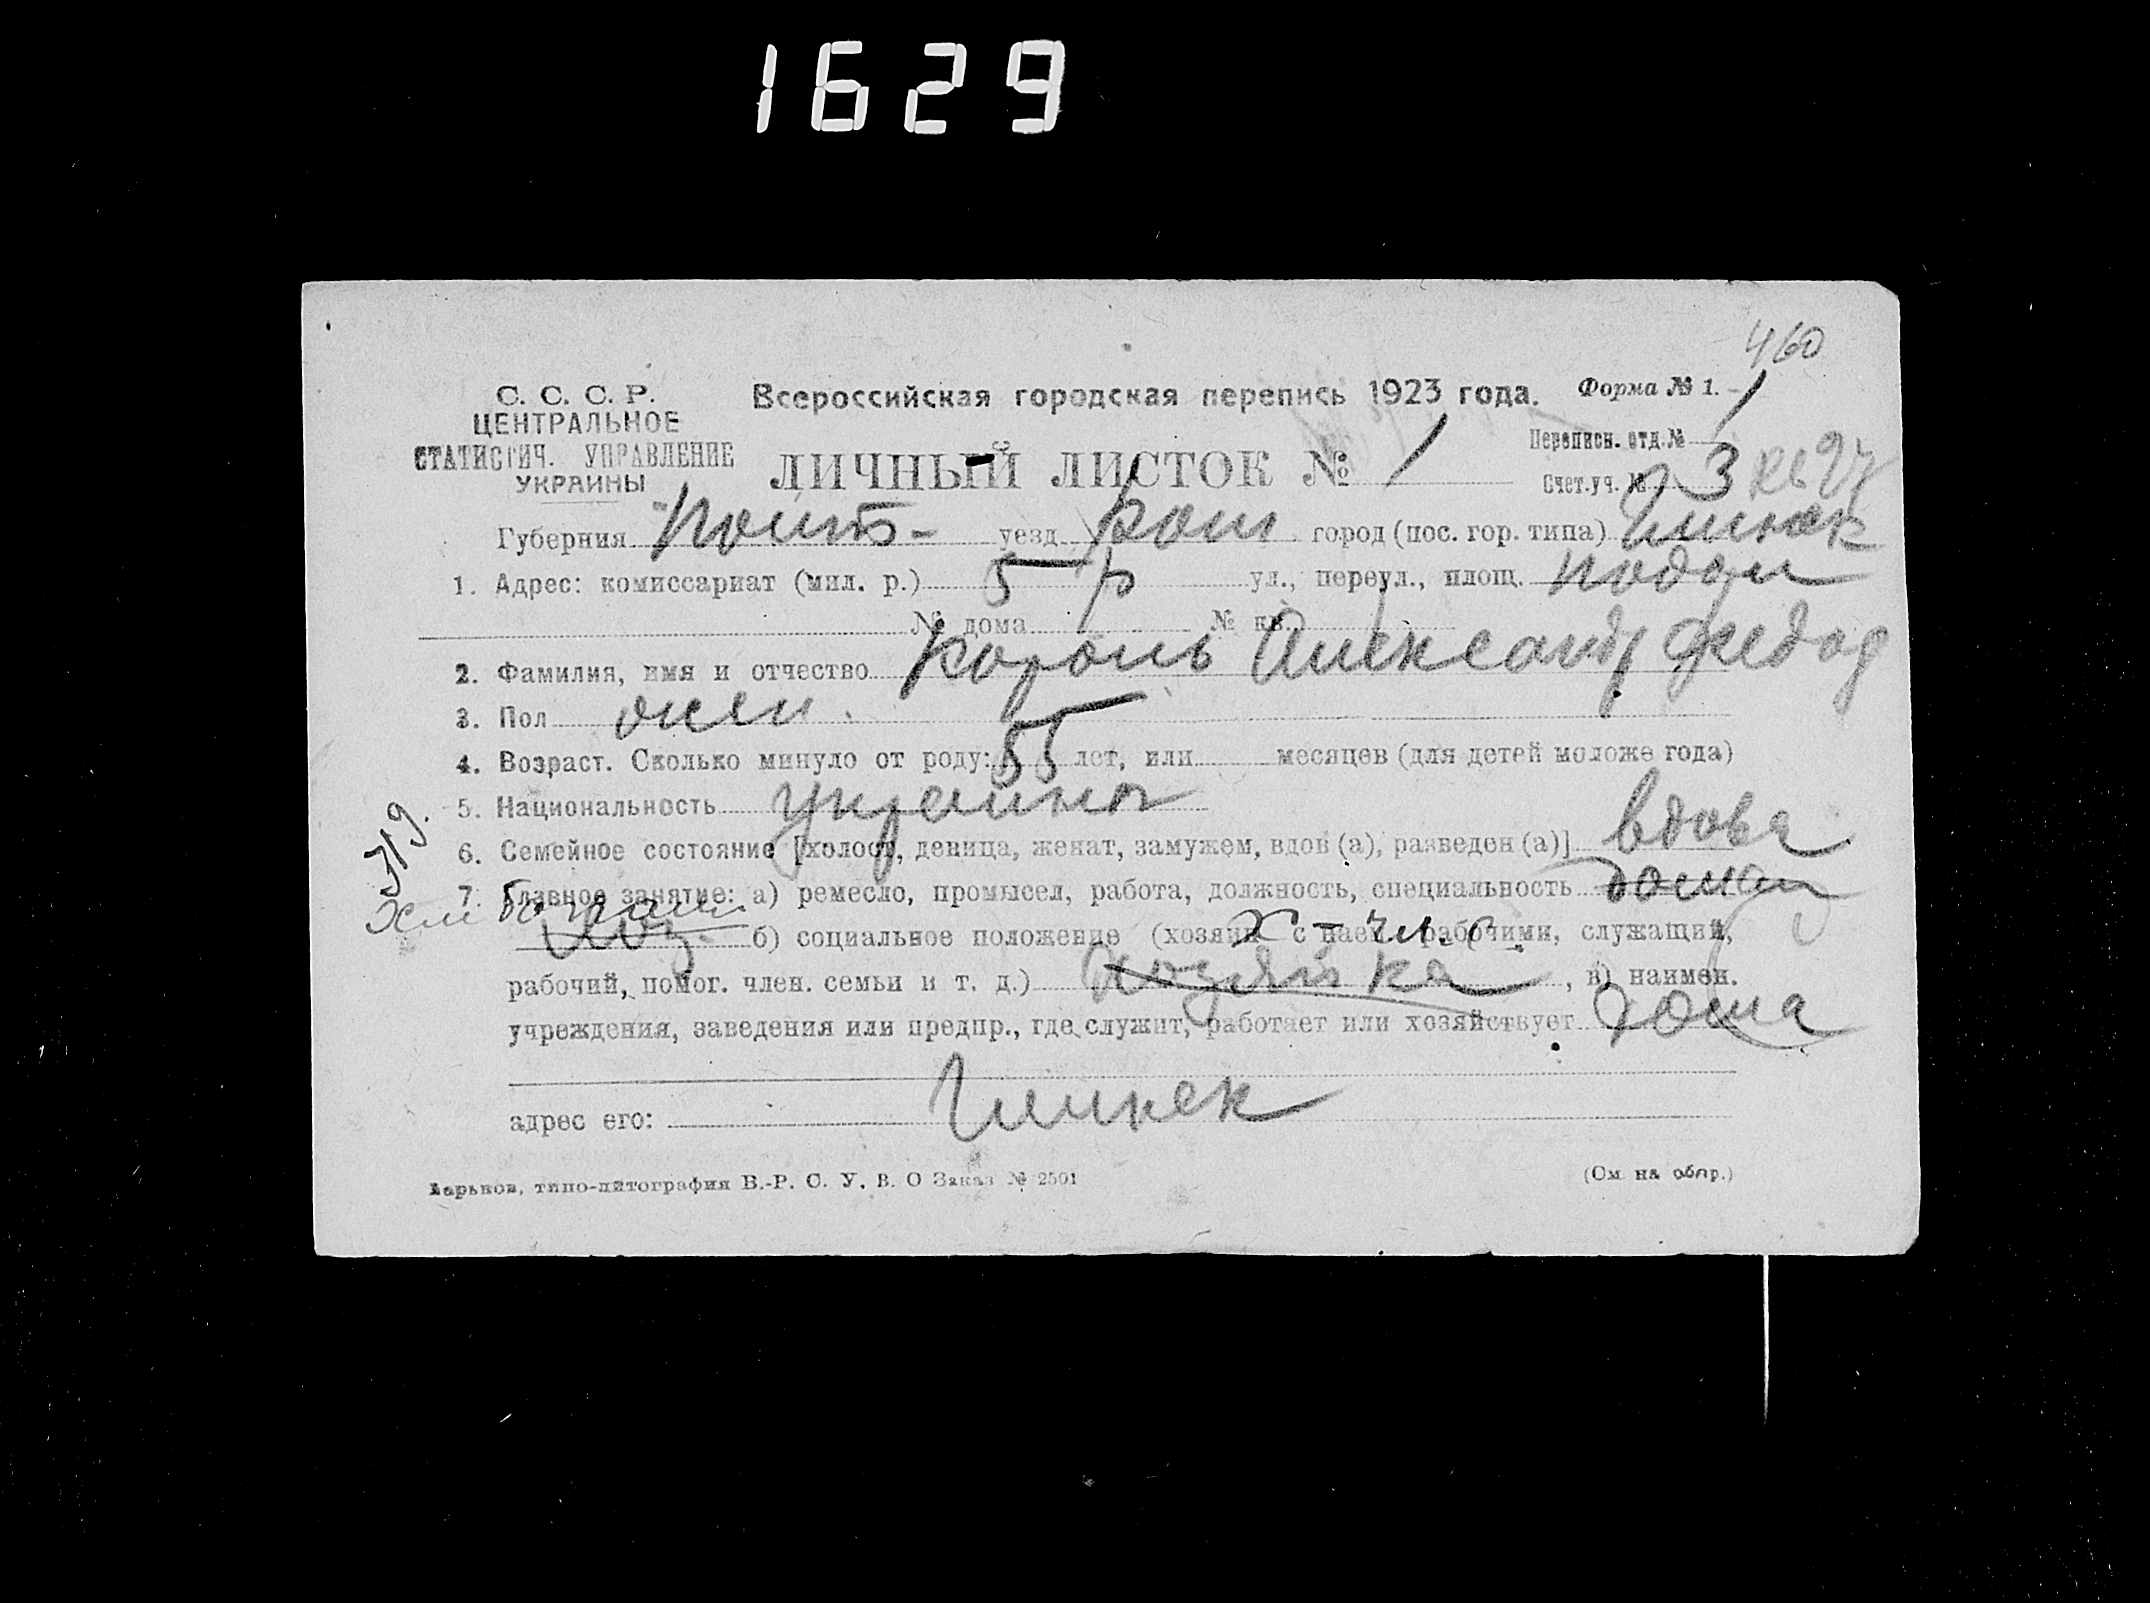 1629
460
С. С. С. Р.
ЦЕНТРАЛЬНОЕ
СТАТИСТИЧ. УПРАВЛЕНИЕ
УКРАИНЫ
Всероссийская городская перепись 1923 года. Форма № 1.
ЛИЧНЫЙ ЛИСТОК № 1
Переписн. отд. № 1
Счет. уч. № 3
Губерния Полт- уезд Ром город (пос. гор. типа) Глинск
1. Адрес: комиссариат (мил. р.) 5 р ул., переул., площ. подол
№ дома № кв.
2. Фамилия, имя и отчество Король Александр Федор
3. Пол жен.
4. Возраст. Сколько минуло от роду: 55 лет, или месяцев (для детей моложе года)
5. Национальность украинка
6. Семейное состояние [холост, девица, женат, замужем, вдов (а), разведен (а)] вдова
7. Главное занятие: а) ремесло, промысел, работа, должность, специальность домаш
хоз. б) социальное положение (хозяин с наемн. рабочими, служащий,
рабочий, помог. член. семьи и т. д.) хозяйка, в) наимен.
учреждения, заведения или предпр., где служит, работает или хозяйствует дома
адрес его: Глинск
Харьков, типо-литография В.-Р. С. У. В. О Заказ № 2501
(См. на обор.)